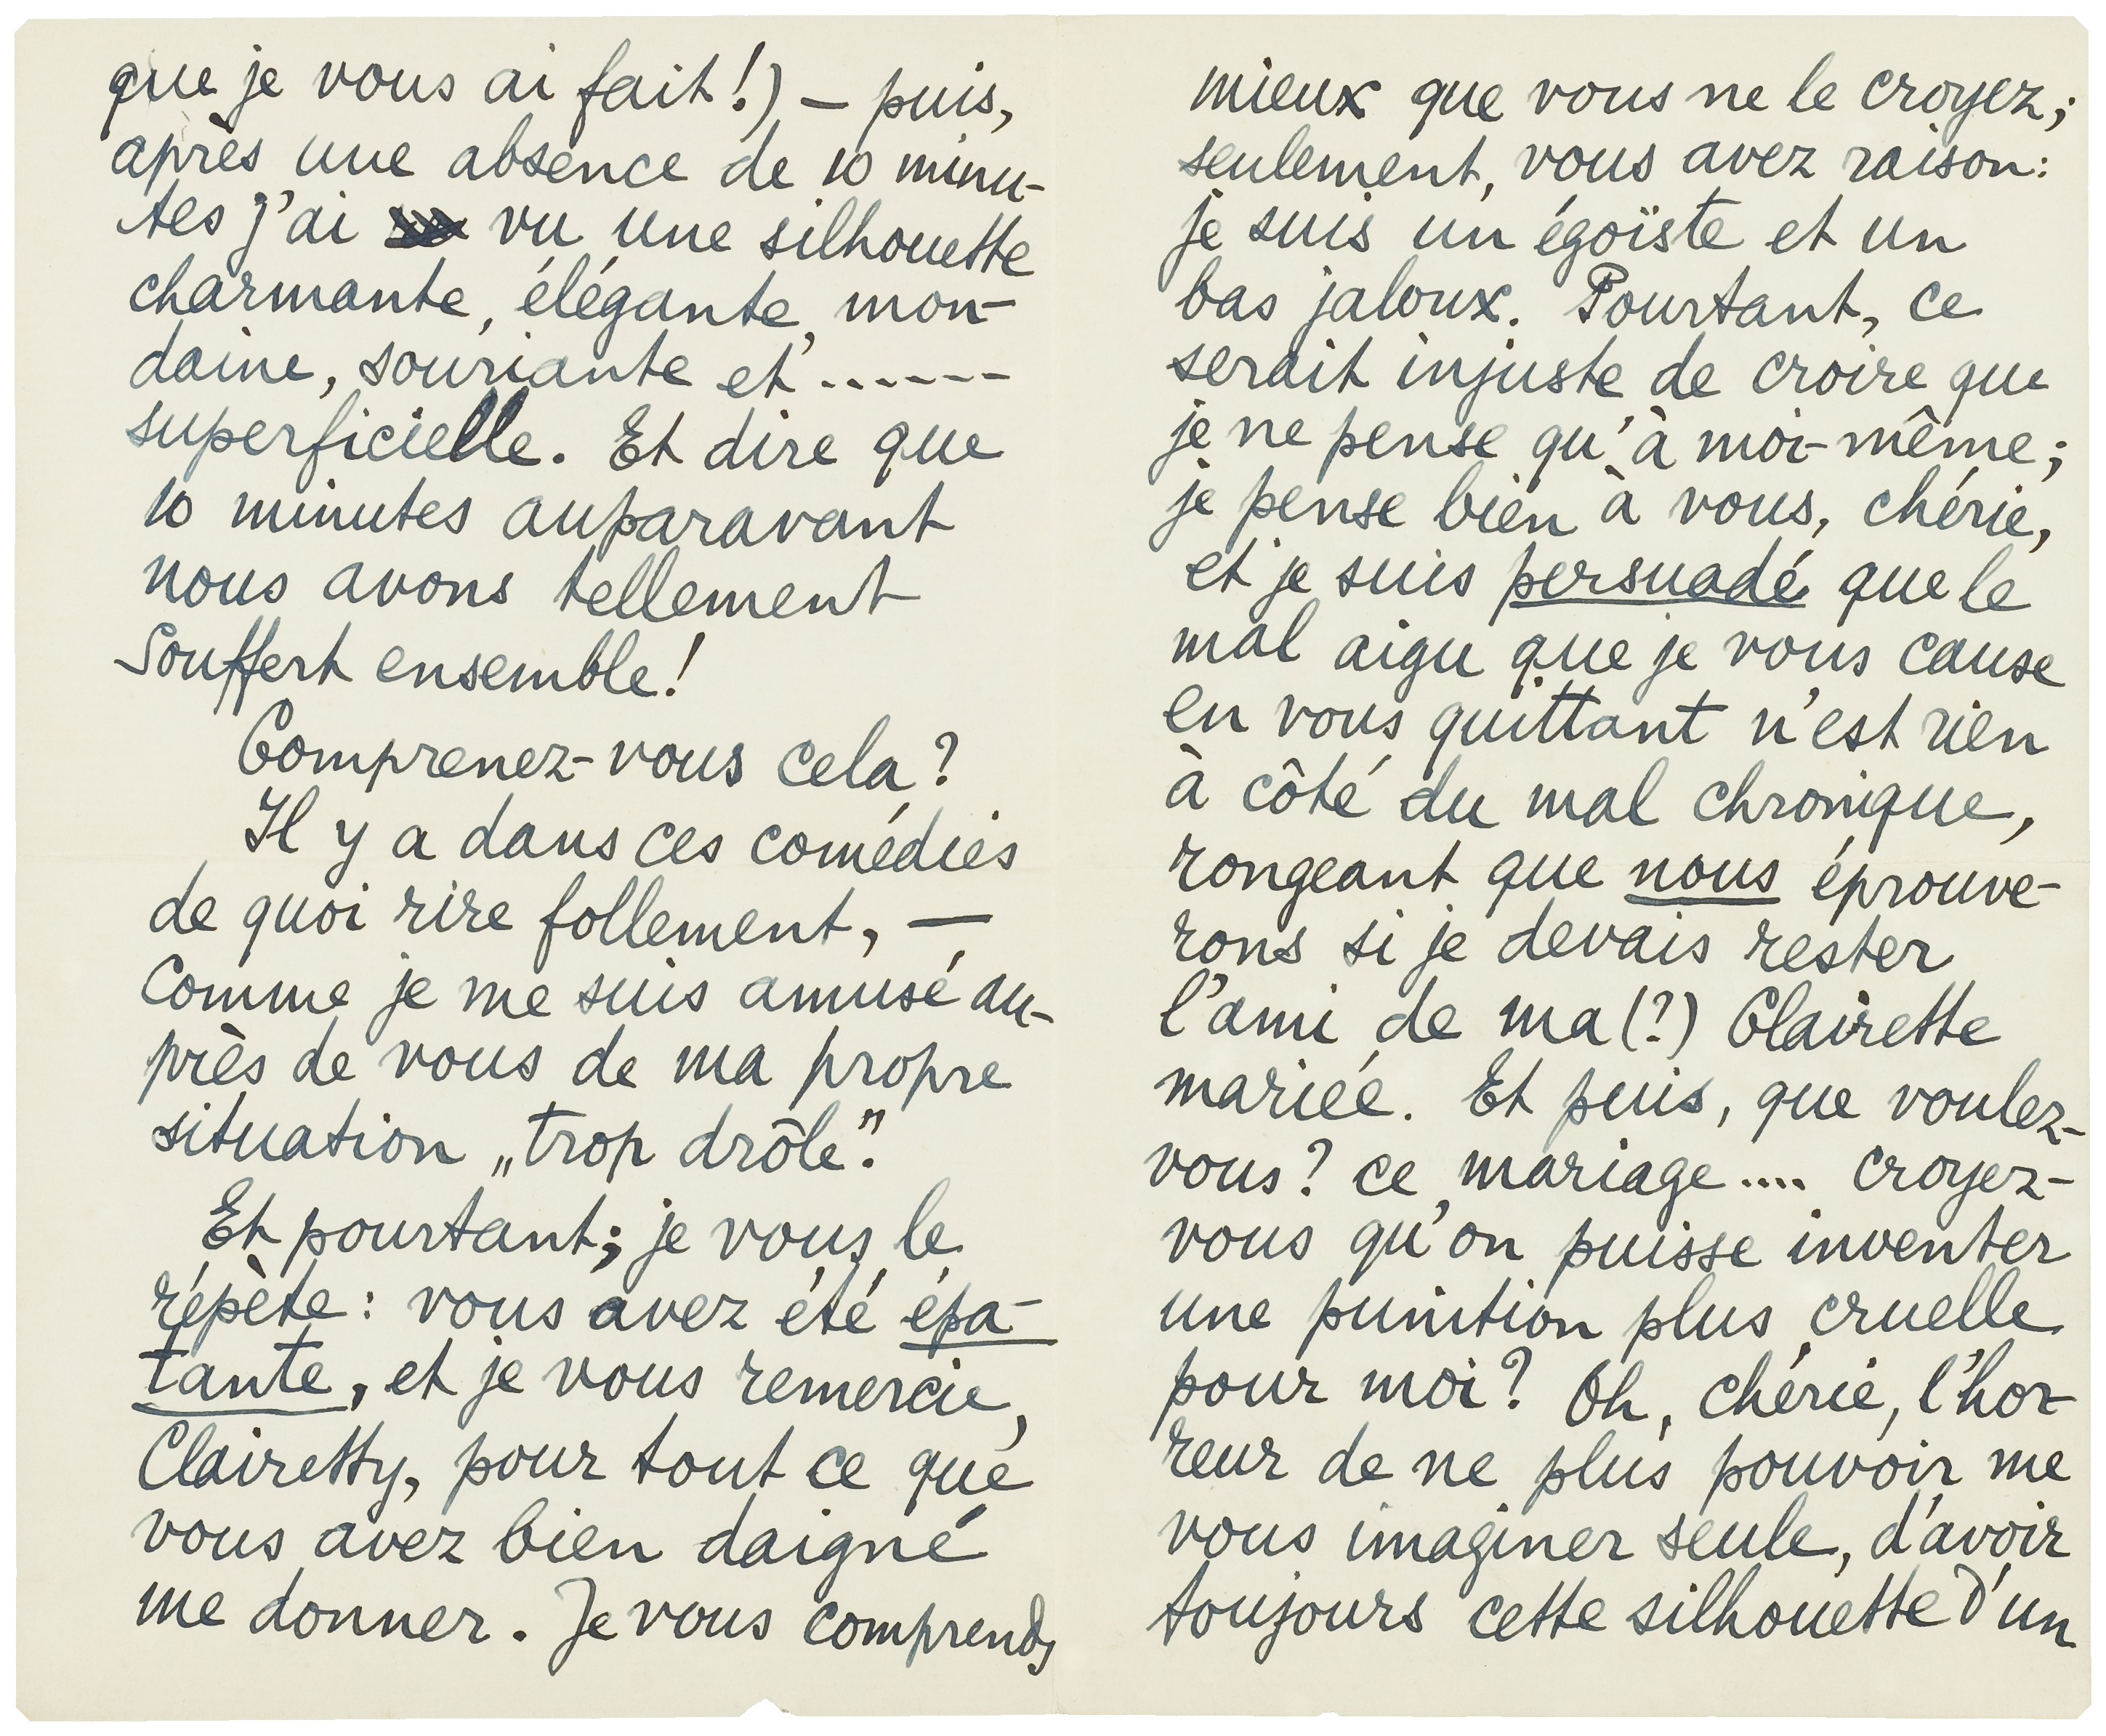 que je vous ai fait!) — puis,
après une absence de 10 minu-
tes j'ai vu une silhouette
charmante, élégante, mon-
daine, souriante et ------
superficielle. Et dire que
10 minutes auparavant
nous avons tellement
souffert ensemble!
Comprenez-vous cela?
Il y a dans ces comédies
de quoi rire follement, —
Comme je me suis amusé au-
près de vous de ma propre
situation „trop drôle".
Et pourtant; je vous le
répète: vous avez été épa-
tante, et je vous remercie,
Clairetty, pour tout ce que
vous avez bien daigné
me donner. Je vous comprends
mieux que vous ne le croyez;
seulement, vous avez raison:
je suis un égoïste et un
bas jaloux. Pourtant, ce
serait injuste de croire que
je ne pense qu'à moi-même;
je pense bien à vous, chérie,
et je suis persuadé que le
mal aigu que je vous cause
en vous quittant n'est rien
à côté du mal chronique,
rongeant que nous éprouve-
rons si je devais rester
l'ami de ma (?) Clairette
mariée. Et puis, que voulez-
vous? ce mariage.... croyez-
vous qu'on puisse inventer
une punition plus cruelle
pour moi? Oh, chérie, l'hor-
reur de ne plus pouvoir me
vous imaginer seule, d'avoir
toujours cette silhouette d'un